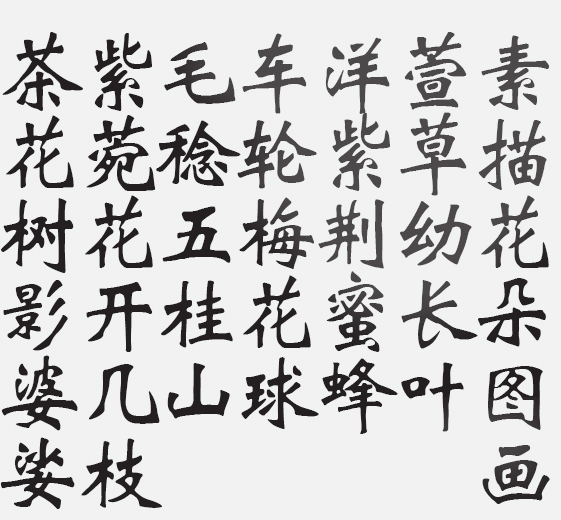 素描花朵图画
萱草幼长叶
洋紫荆蜜蜂
车轮梅花球
毛稔五桂山
紫菀花开几枝
茶花树影婆娑